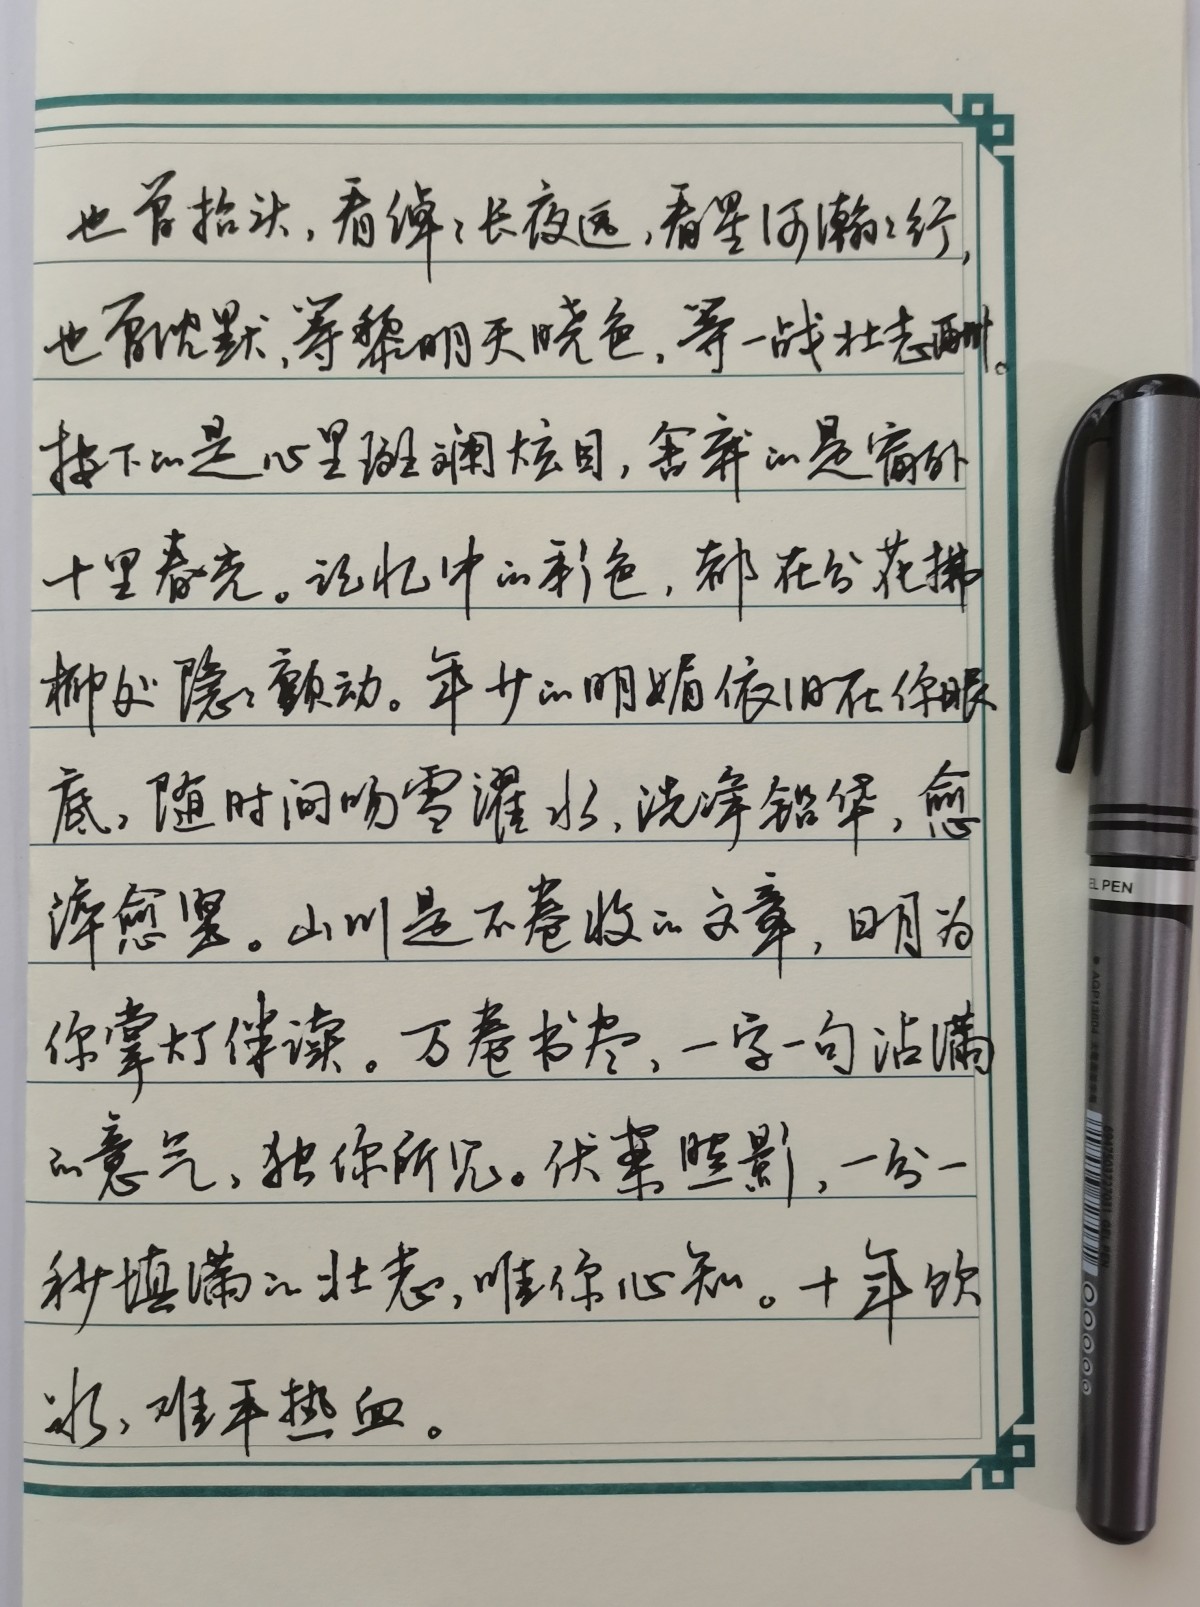 也曾抬头，看绰绰长夜远，看星河瀚瀚行，
也曾沈默，等黎明天晓色，等一战壮志酬。
按下的是心里斑斓炫目，舍弃的是窗外
十里春光。记忆中的彩色，都在分花拂
柳处隐隐颤动。年少的明媚依旧在你眼
底，随时间吻雪濯冰，洗净铅华，愈
淬愈坚。山川是不卷收的文章，日月为
你掌灯伴读。万卷书尽，一字一句沾满
的意气，独你所见。伏案照影，一分一
秒填满的壮志，唯你心知。十年饮
冰，难平热血。
EL PEN